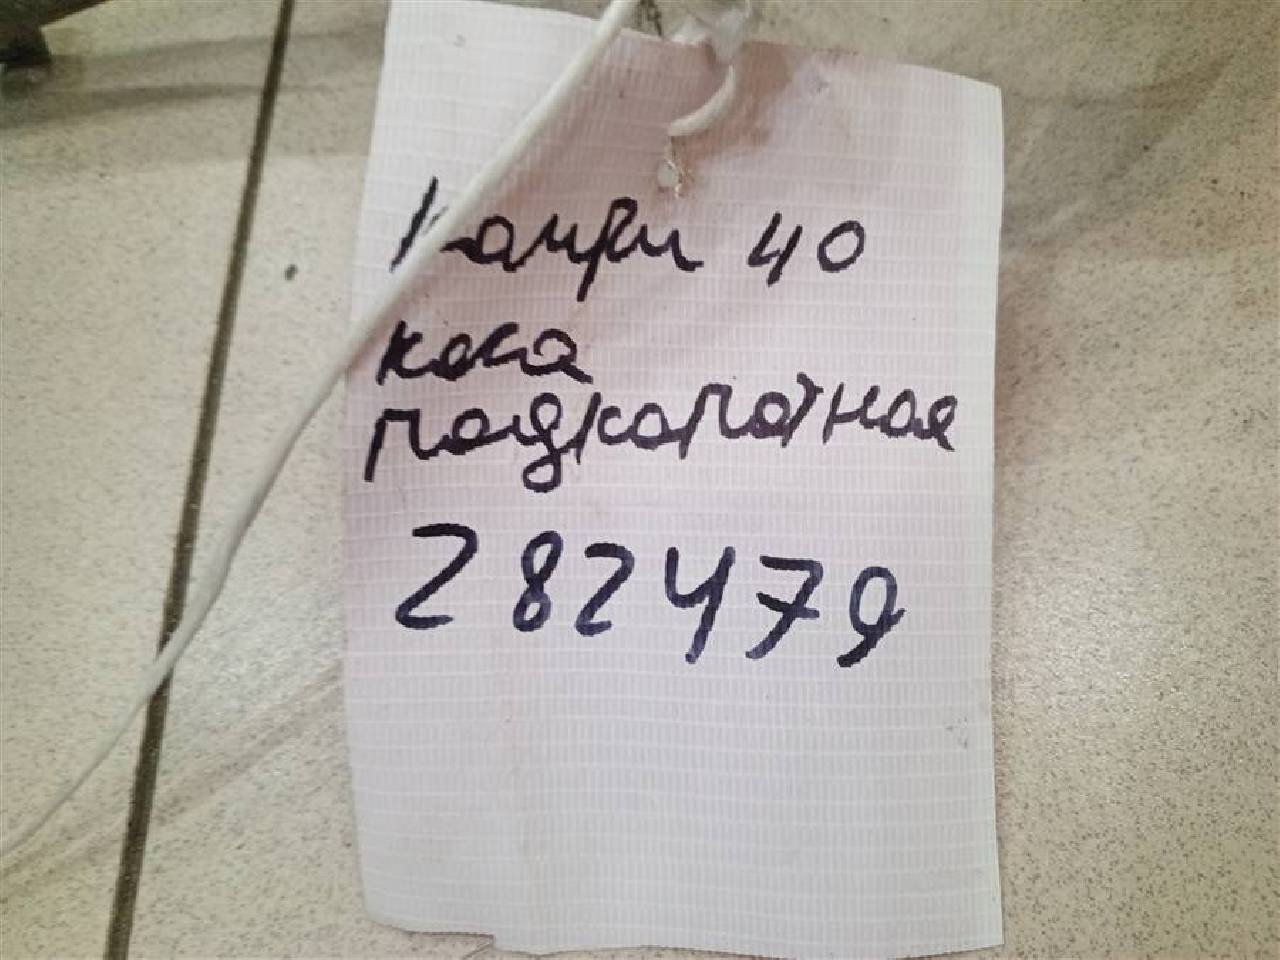 Камри 40
коса
подкапотная
282479